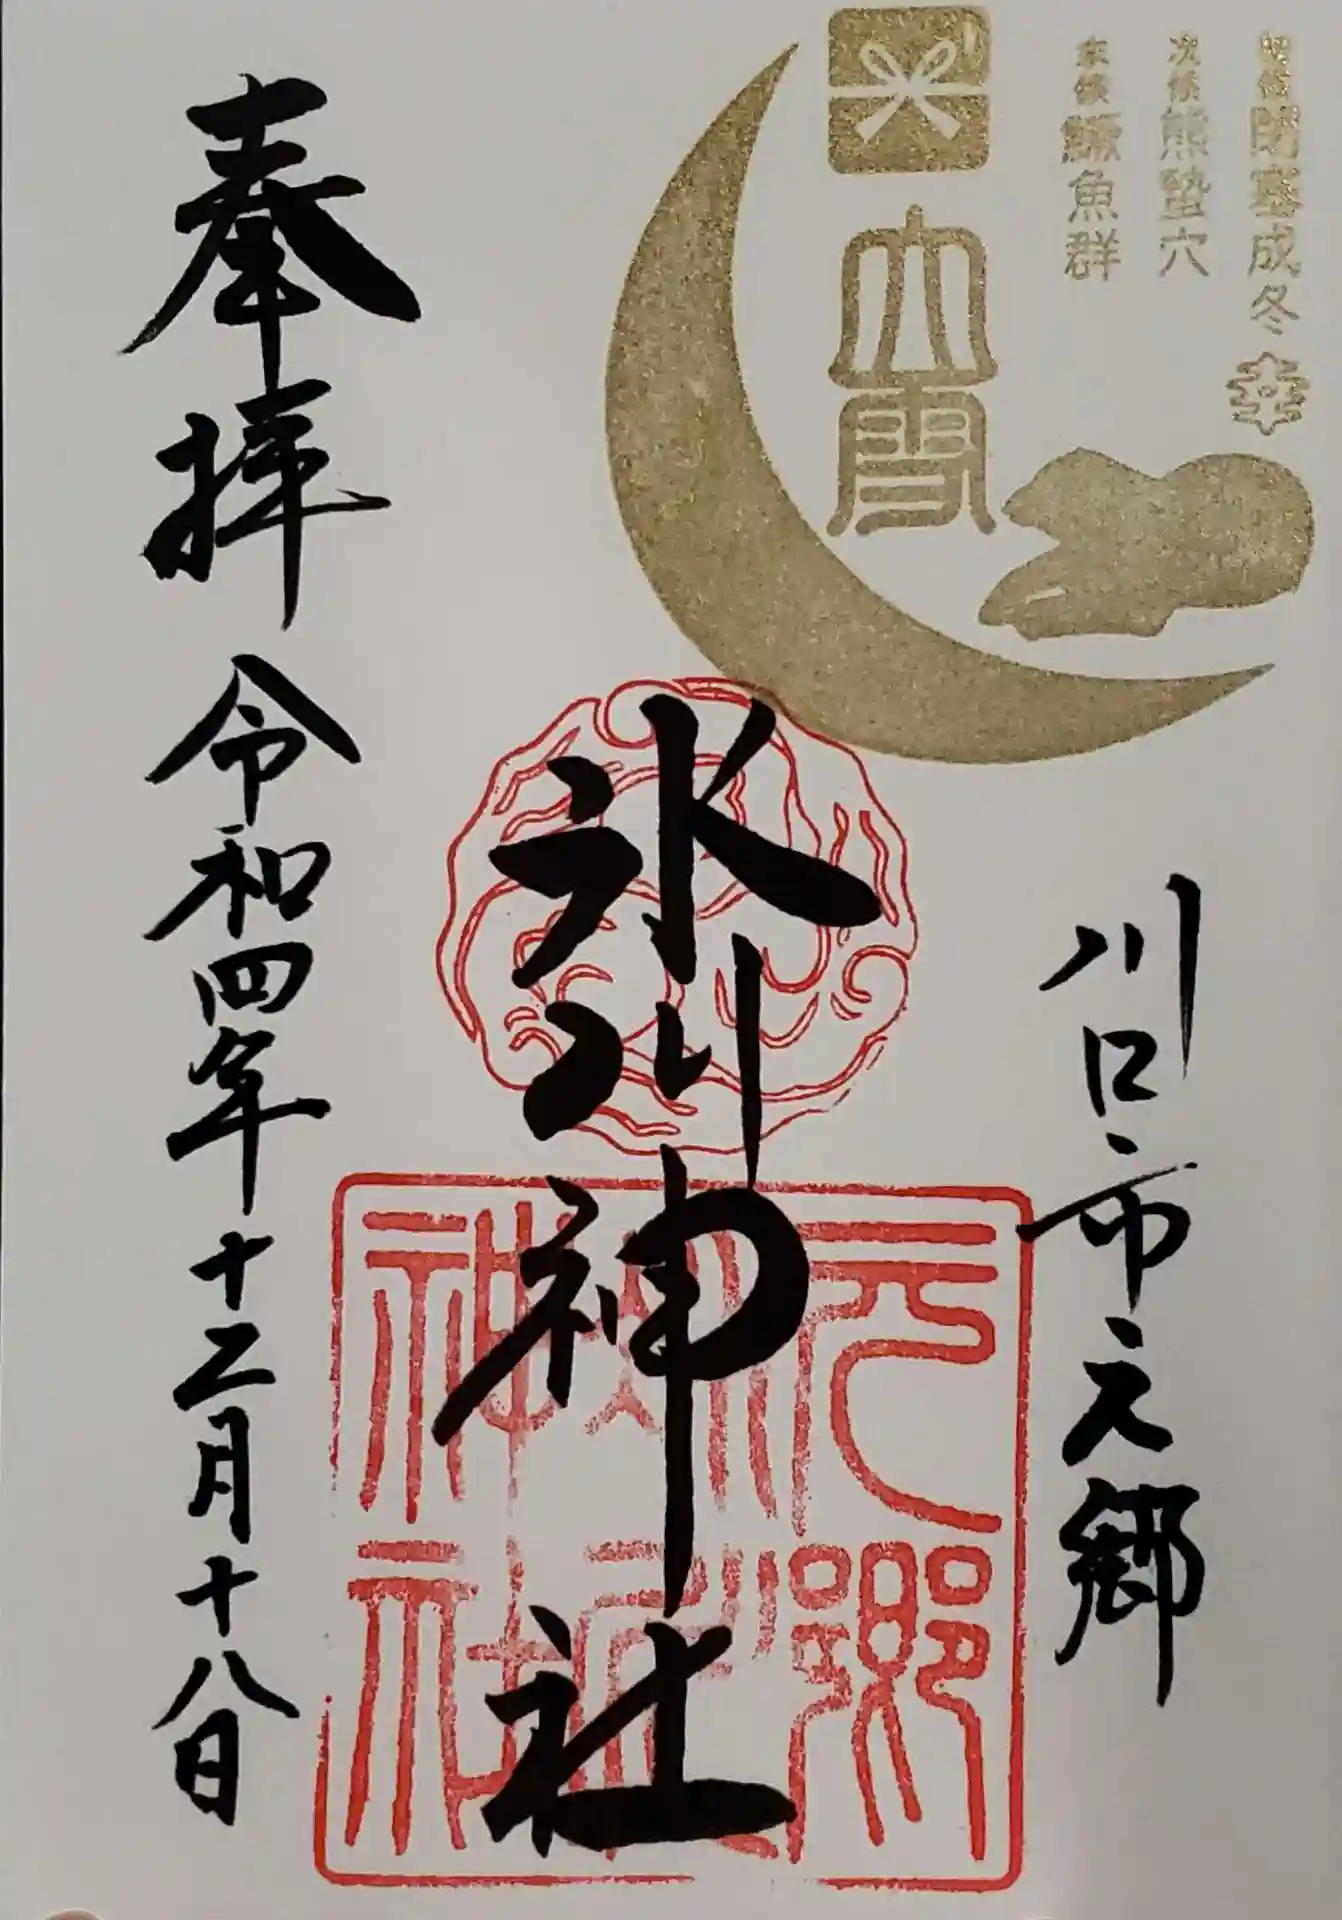 初候 閉塞成冬 幸
次候 熊蟄穴
末候 鱖魚群
大雪
川口市元郷
氷川神社
元郷
氷川
神社
奉拝 令和四年十二月十八日